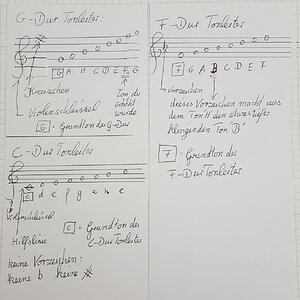 G-Dur Tonleiter:
G A H C D E F G
Kreuzchen
Ton der
erhöht
wurde
Violinschlüssel
G = Grundton des G-Dur
C-Dur Tonleiter
c d e f g a h c
Hilfslinie
c = Grundton der
C-Dur Tonleiter
keine Vorzeichen:
keine b keine #
F-Dur Tonleiter
F G A B C D E F
Vorzeichen
dieses Vorzeichen macht aus
dem Ton H den etwas tiefer
klingenden Ton "B"
F = Grundton der
F-Dur Tonleiter